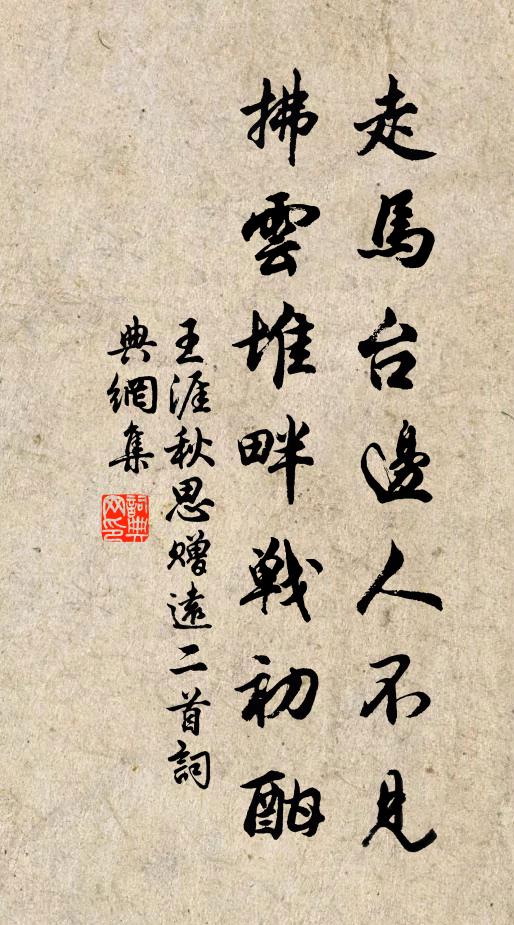 走馬台邊人不見
拂雲堆畔戰初酣
王涯秋思贈遠二首詞
典網集
詞典
网印